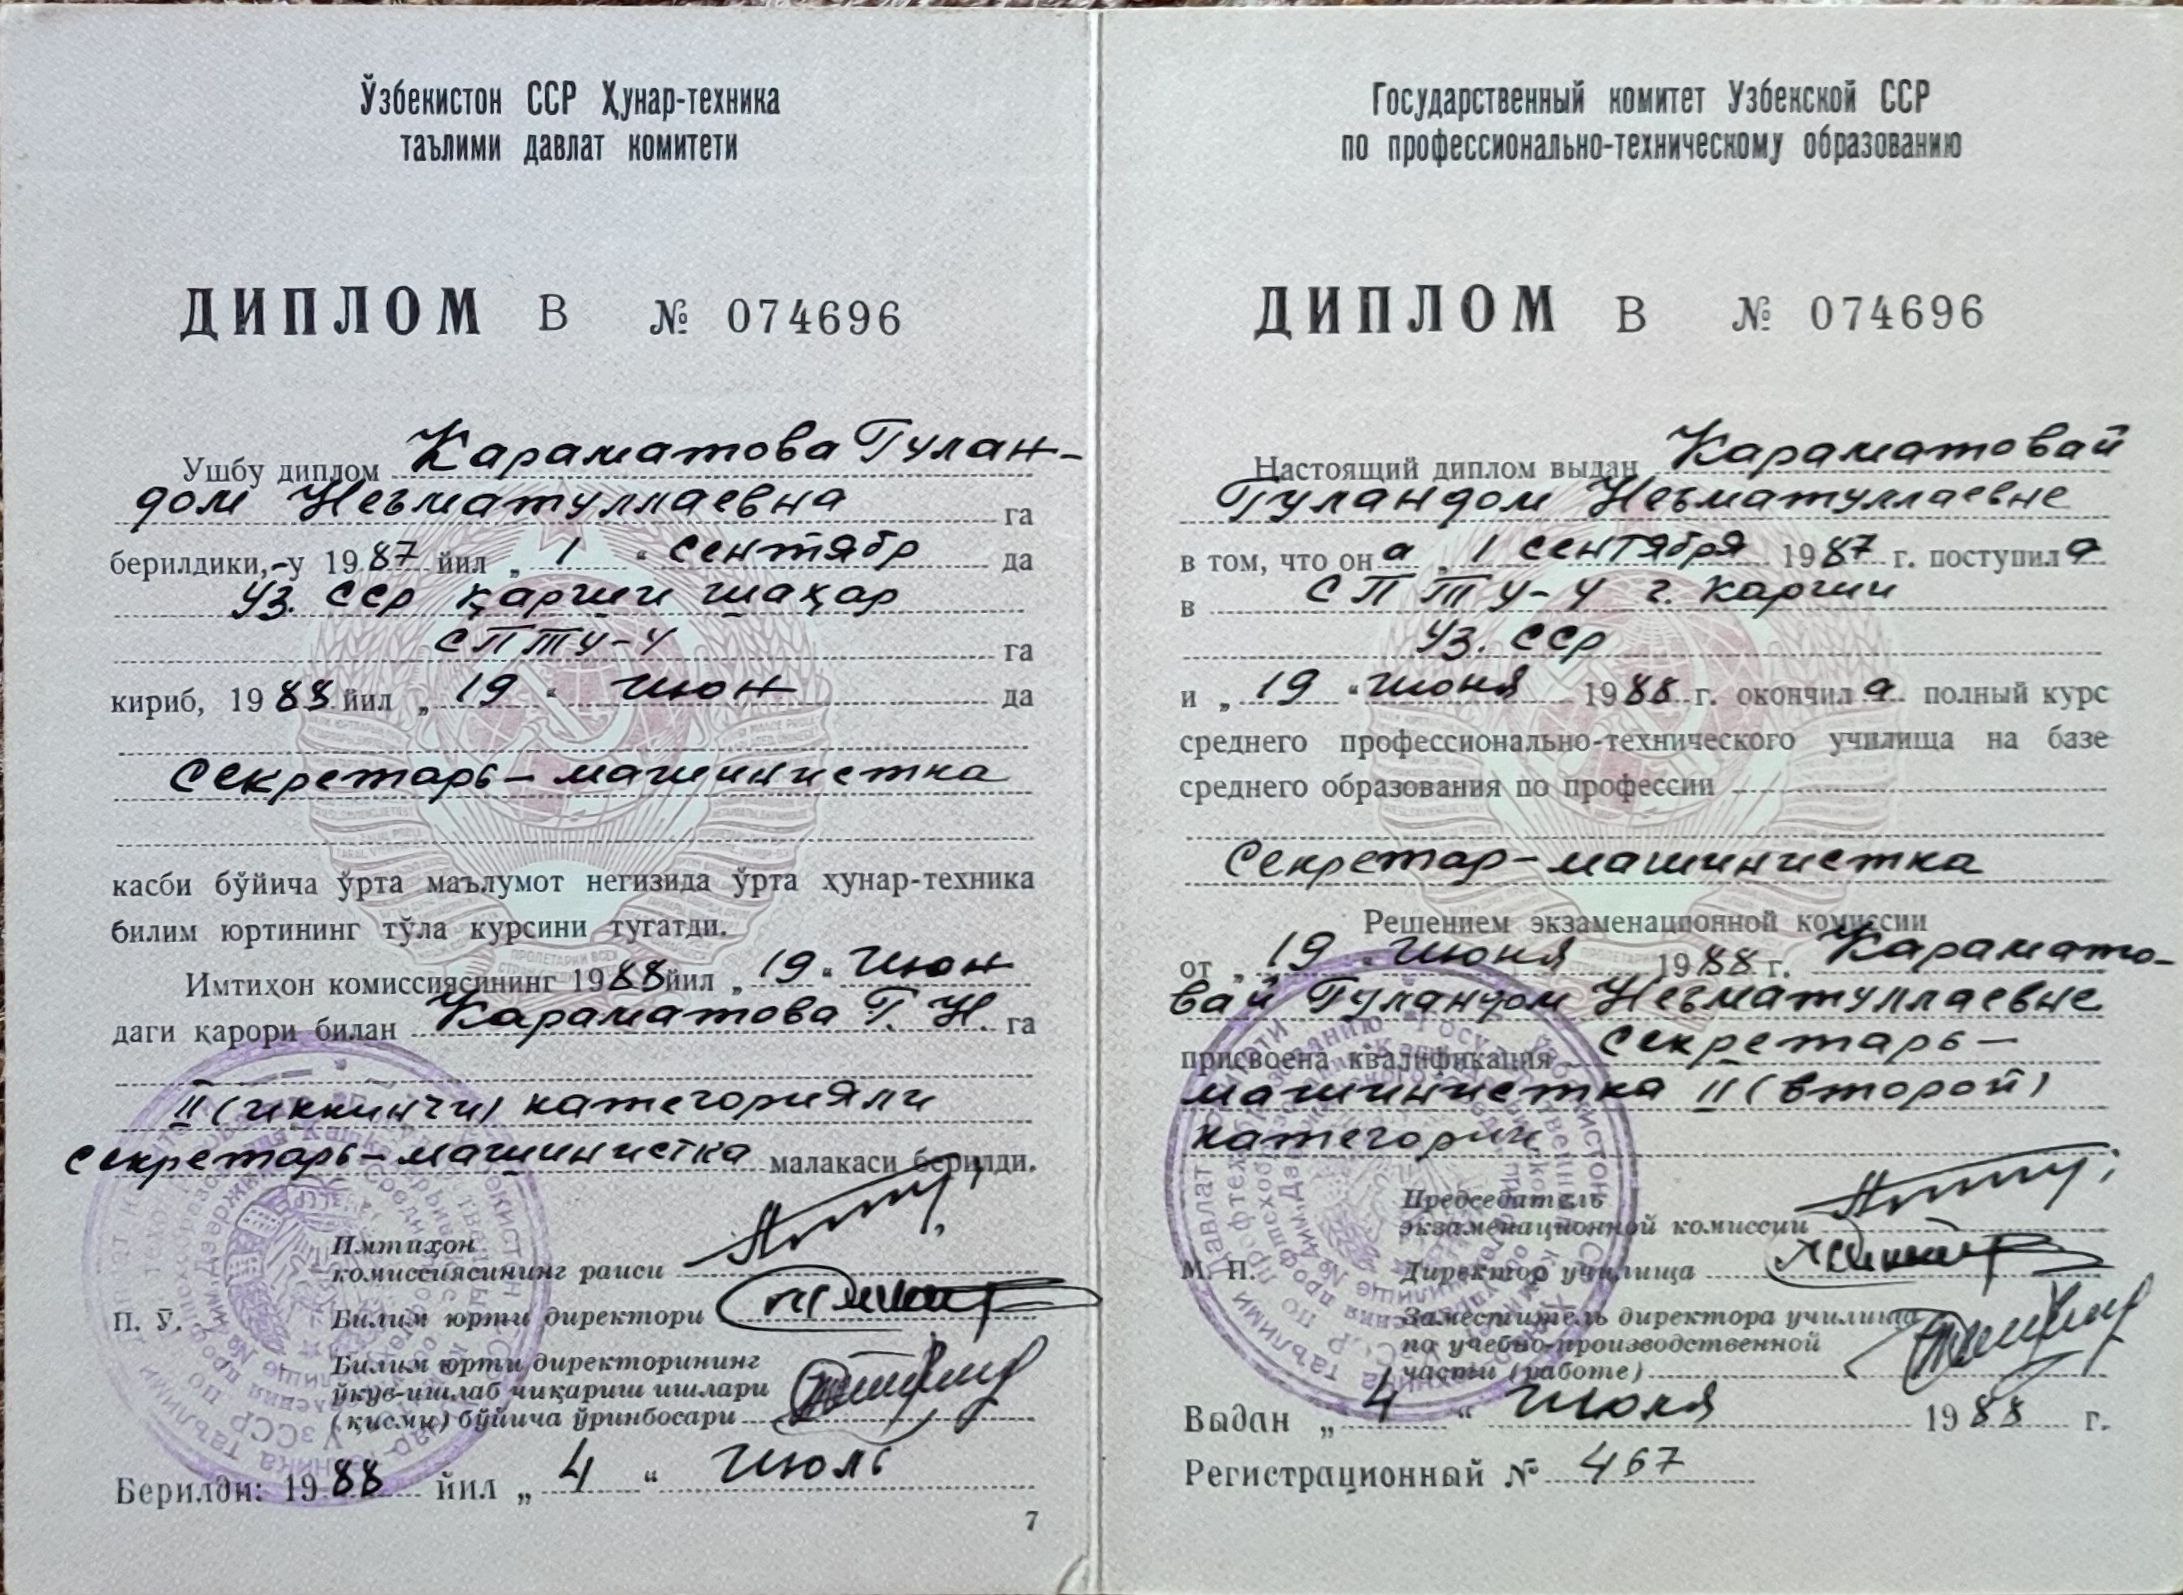 Ўзбекистон ССР Ҳунар-техника
таълими давлат комитети
ДИПЛОМ В № 074696
Ушбу диплом Караматова Гулан-
дом Неъматуллаевна га
берилдики,-у 1987 йил „ 1 “ сентябр да
Уз. ССР қарши шаҳар
СПТУ-4 га
кириб, 1988 йил „ 19 “ июн да
секретарь-машинистка
касби бўйича ўрта маълумот негизида ўрта ҳунар-техника
билим юртининг тўла курсини тугатди.
Имтиҳон комиссиясининг 1988 йил „ 19 “ июн
даги қарори билан Караматова Г. Н. га
II (иккинчи) категорияли
секретарь-машинистка малакаси берилди.
Имтиҳон
комиссиясининг раиси
П. Ў. Билим юрти директори
Билим юрти директорининг
ўқув-ишлаб чиқариш ишлари
(қисми) бўйича ўринбосари
Берилди: 1988 йил „ 4 “ июль
7
Государственный комитет Узбекской ССР
по профессионально-техническому образованию
ДИПЛОМ В № 074696
Настоящий диплом выдан Караматовай
Гуландом Неъматуллаевне
в том, что он а „ 1 сентября 1987 г. поступил а
в СПТУ-4 г. Карши
Уз. ССР
и „ 19 “ июня 1988 г. окончил а полный курс
среднего профессионально-технического училища на базе
среднего образования по профессии
секретар-машинистка
Решением экзаменационной комиссии
от „ 19 “ июня 1988 г. Карамато-
вай Гуландом Неъматуллаевне
присвоена квалификация секретарь-
машинистка II (второй)
категории
Председатель
экзаменационной комиссии
М. П. Директор училища
Заместитель директора училища
по учебно-производственной
части (работе)
Выдан „ 4 “ июля 1988 г.
Регистрационный № 467